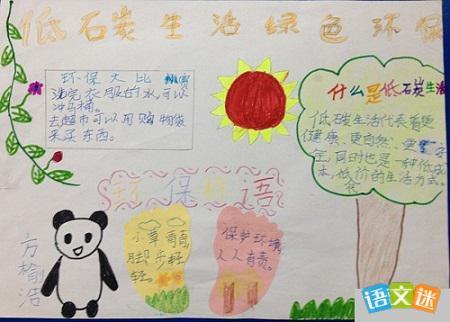 低石炭生活绿色环保
环保大比
洗完衣服的水可以
冲马桶。
去超市可以用购物袋
来买东西。
什么是低石炭生活
低碳生活代表着更
健康、更自然、更
全,同时也是一种低成
本,低价的生活方式。
环保标语
小草青青
脚步轻
轻。
保护环境,
人人有责。
方榆洁
语文迷